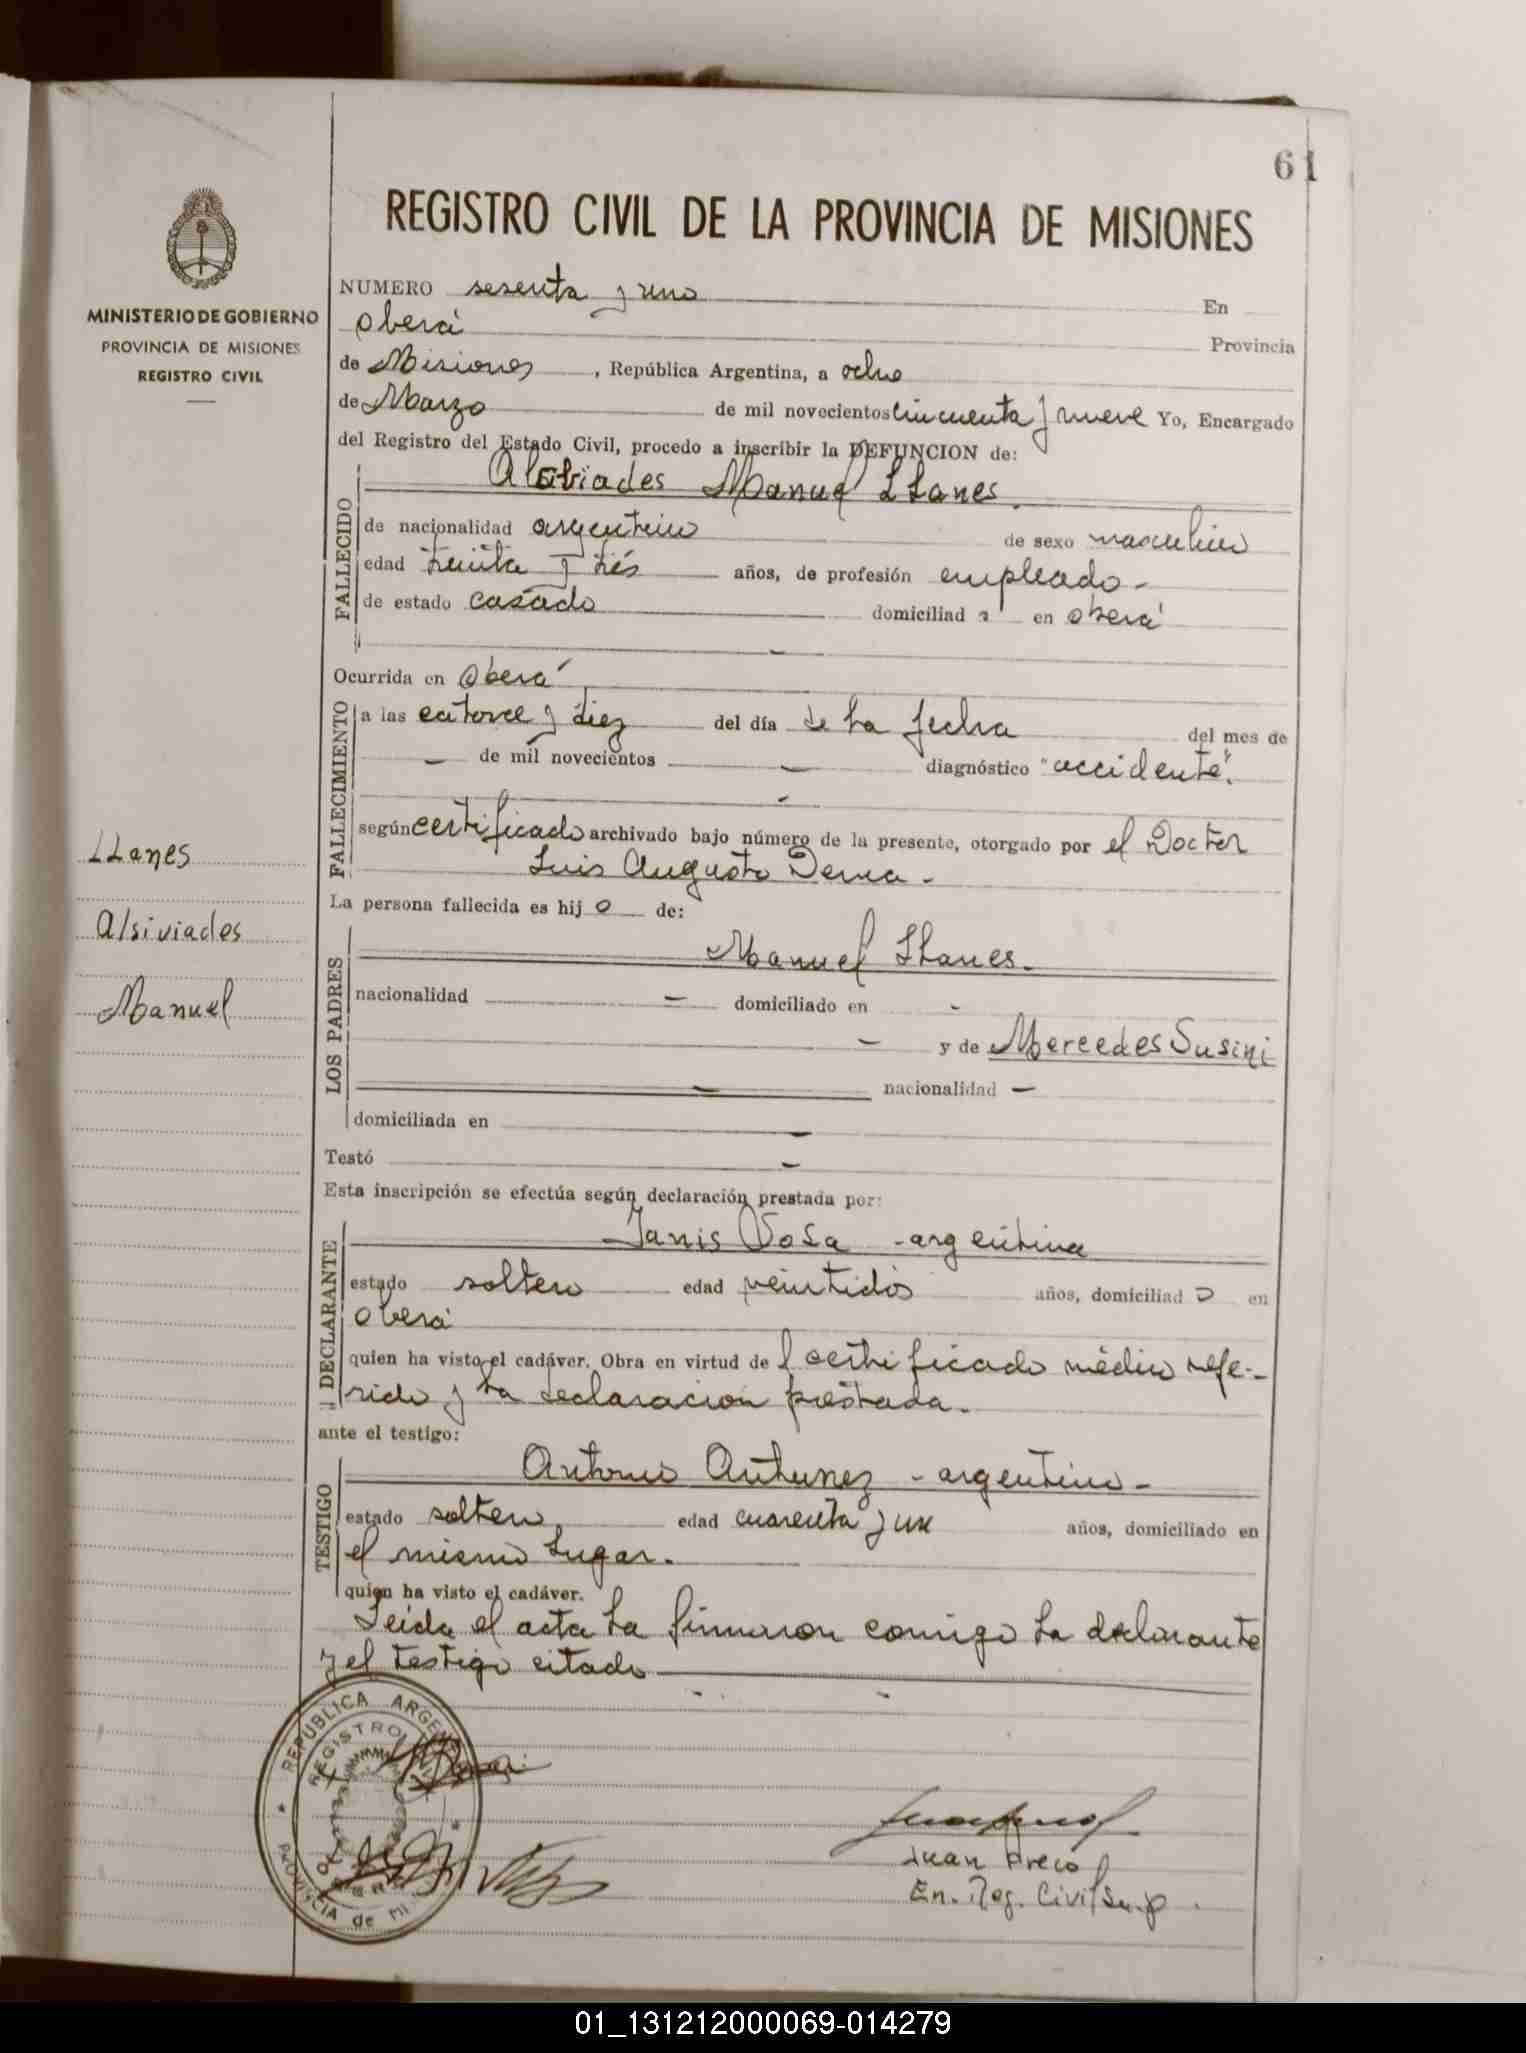 61
REGISTRO CIVIL DE LA PROVINCIA DE MISIONES
MINISTERIO DE GOBIERNO
PROVINCIA DE MISIONES
REGISTRO CIVIL
NUMERO sesenta y uno En
Oberá Provincia
de Misiones, República Argentina, a ocho
de Marzo de mil novecientos cincuenta y nueve Yo, Encargado
del Registro del Estado Civil, procedo a inscribir la DEFUNCION de:
Manuel LLanes
FALLECIDO
de nacionalidad argentino de sexo masculino
edad treinta y trés años, de profesión empleado-
de estado casado domiciliad en oberá
Ocurrida en Oberá
FALLECIMIENTO
a las catorce y diez del día de la fecha del mes de
- de mil novecientos - diagnóstico "accidente".
según certificado archivado bajo número de la presente, otorgado por el Doctor
Luis Augusto -
LLanes
Alsiviades
Manuel
La persona fallecida es hijo de:
Manuel LLanes.
LOS PADRES
nacionalidad - domiciliado en -
- y de Mercedes Susini
- nacionalidad -
domiciliada en -
Testó -
Esta inscripción se efectúa según declaración prestada por:
-argentina
DECLARANTE
estado soltero edad veintidós años, domiciliad en
Oberá
quien ha visto el cadáver. Obra en virtud del certificado médico refe-
rido y la declaración prestada.
ante el testigo:
Antonio Antunez - argentino-
TESTIGO
estado soltero edad cuarenta y un años, domiciliado en
el mismo lugar.
quien ha visto el cadáver.
Leída el acta la firmaron conmigo la declarante
y el testigo citado
REPUBLICA ARGENTINA
REGISTRO CIVIL
PROVINCIA de MI
Juan
En. Reg. Civil
01_131212000069-014279